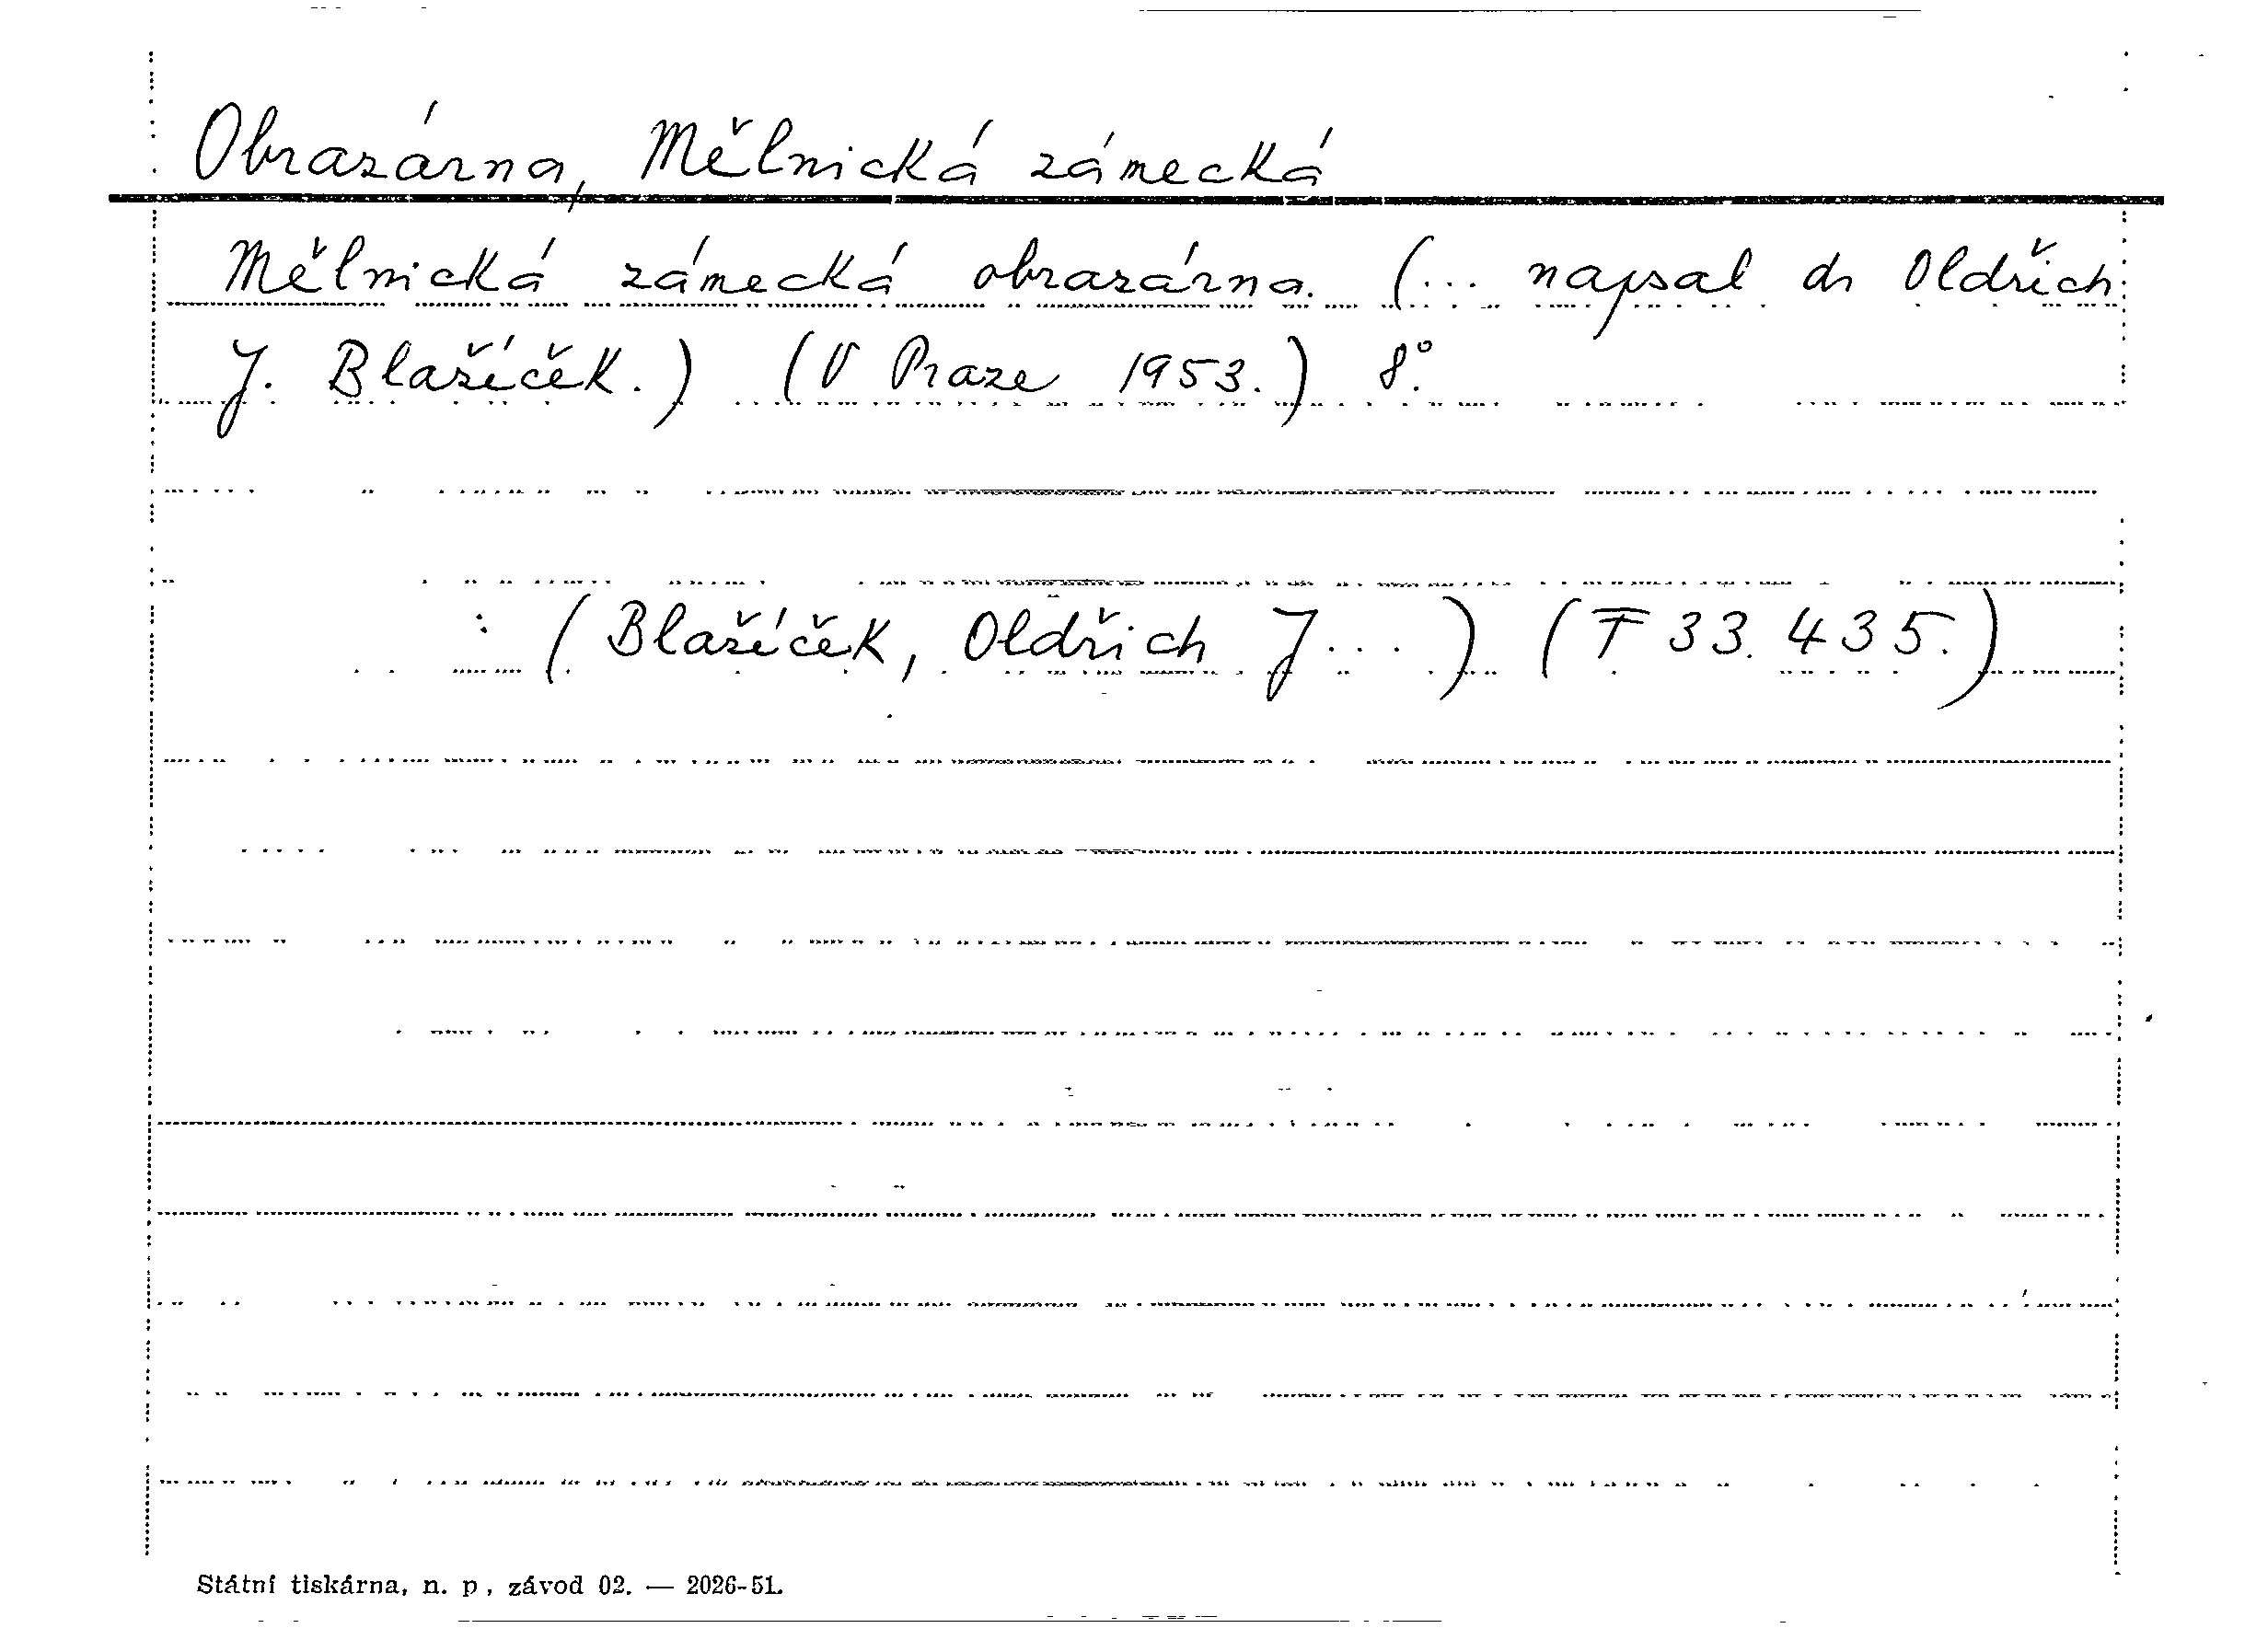 Obrazárna, Mělnická zámecká
Mělnická zámecká obrazárna. (... napsal dr Oldřich
J. Blažíček.) (V Praze 1953.) 8°.
: (Blažíček, Oldřich J...) (F 33.435.)
Státní tiskárna, n. p., závod 02. — 2026-51.